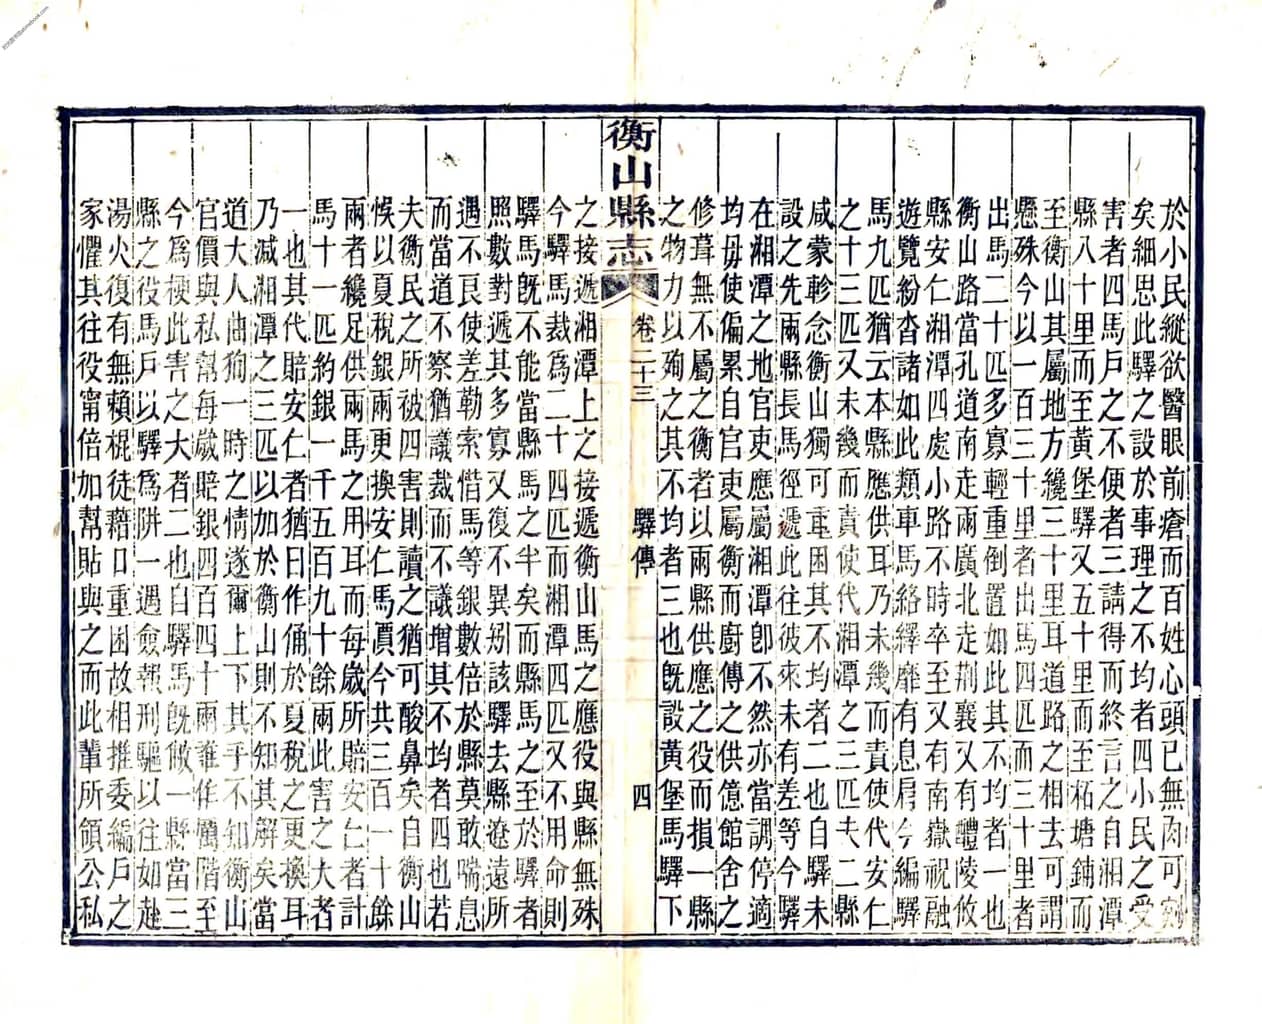 於小民縱欲醫眼前瘡而百姓心頭已無肉可剜
矣細思此驛之設於事理之不均者四小民之受
害者四馬戶之不便者三請得而終言之自湘潭
縣八十里而至黃堡驛又五十里而至柘塘鋪而
至衡山其屬地方纔三十里耳道路之相去可謂
懸殊今以一百三十里者出馬四匹而三十里者
出馬二十匹多寡輕重倒置如此其不均者一也
衡山路當孔道南走兩廣北走荆襄又有醴陵攸
縣安仁湘潭四處小路不時卒至又有南嶽祝融
遊覽紛沓諸如此類車馬絡繹靡有息肩今編驛
馬九匹猶云本縣應供耳乃未幾而責使代安仁
之十三匹又未幾而責使代湘潭之三匹夫二縣
咸蒙軫念衡山獨可重困其不均者二也自驛未
設之先兩縣長馬徑遞此往彼來未有差等今驛
在湘潭之地官吏應屬湘潭卽不然亦當調停適
均毋使偏累自官吏屬衡而廚傳之供億館舍之
修葺無不屬之衡者以兩縣供應之役而損一縣
之物力以殉之其不均者三也旣設黃堡馬驛下
衡山縣志 卷二十三 驛傳 四
之接遞湘潭上之接遞衡山馬之應役與縣無殊
今驛馬裁爲二十四匹而湘潭四匹又不用命則
驛馬旣不能當縣馬之半矣而縣馬之至於驛者
照數對遞其多寡又復不異別該驛去縣遼遠所
遇不良使差勒索偕馬等銀數倍於縣莫敢喘息
而當道不察猶議裁而不議增其不均者四也若
夫衡民之所被四害則讀之猶可酸鼻矣自衡山
悞以夏稅銀兩更換安仁馬價今共三百一十餘
兩者纔足供兩馬之用耳而每歲所賠安仁者計
馬十一匹約銀一千五百九十餘兩此害之大者
一也其代賠安仁者猶曰作俑於夏稅之更換耳
乃減湘潭之三匹以加於衡山則不知其解矣當
道大人曲狥一時之情遂爾上下其手不知衡山
官價與私幫每歲賠銀四百四十兩誰作厲階至
今爲梗此害之大者二也自驛馬旣僉一縣當三
縣之役馬戶以驛爲阱一遇僉報刑驅以往如赴
湯火復有無賴棍徒藉口重困故相推委編戶之
家懼其往役甯倍加幫貼與之而此輩所領公私